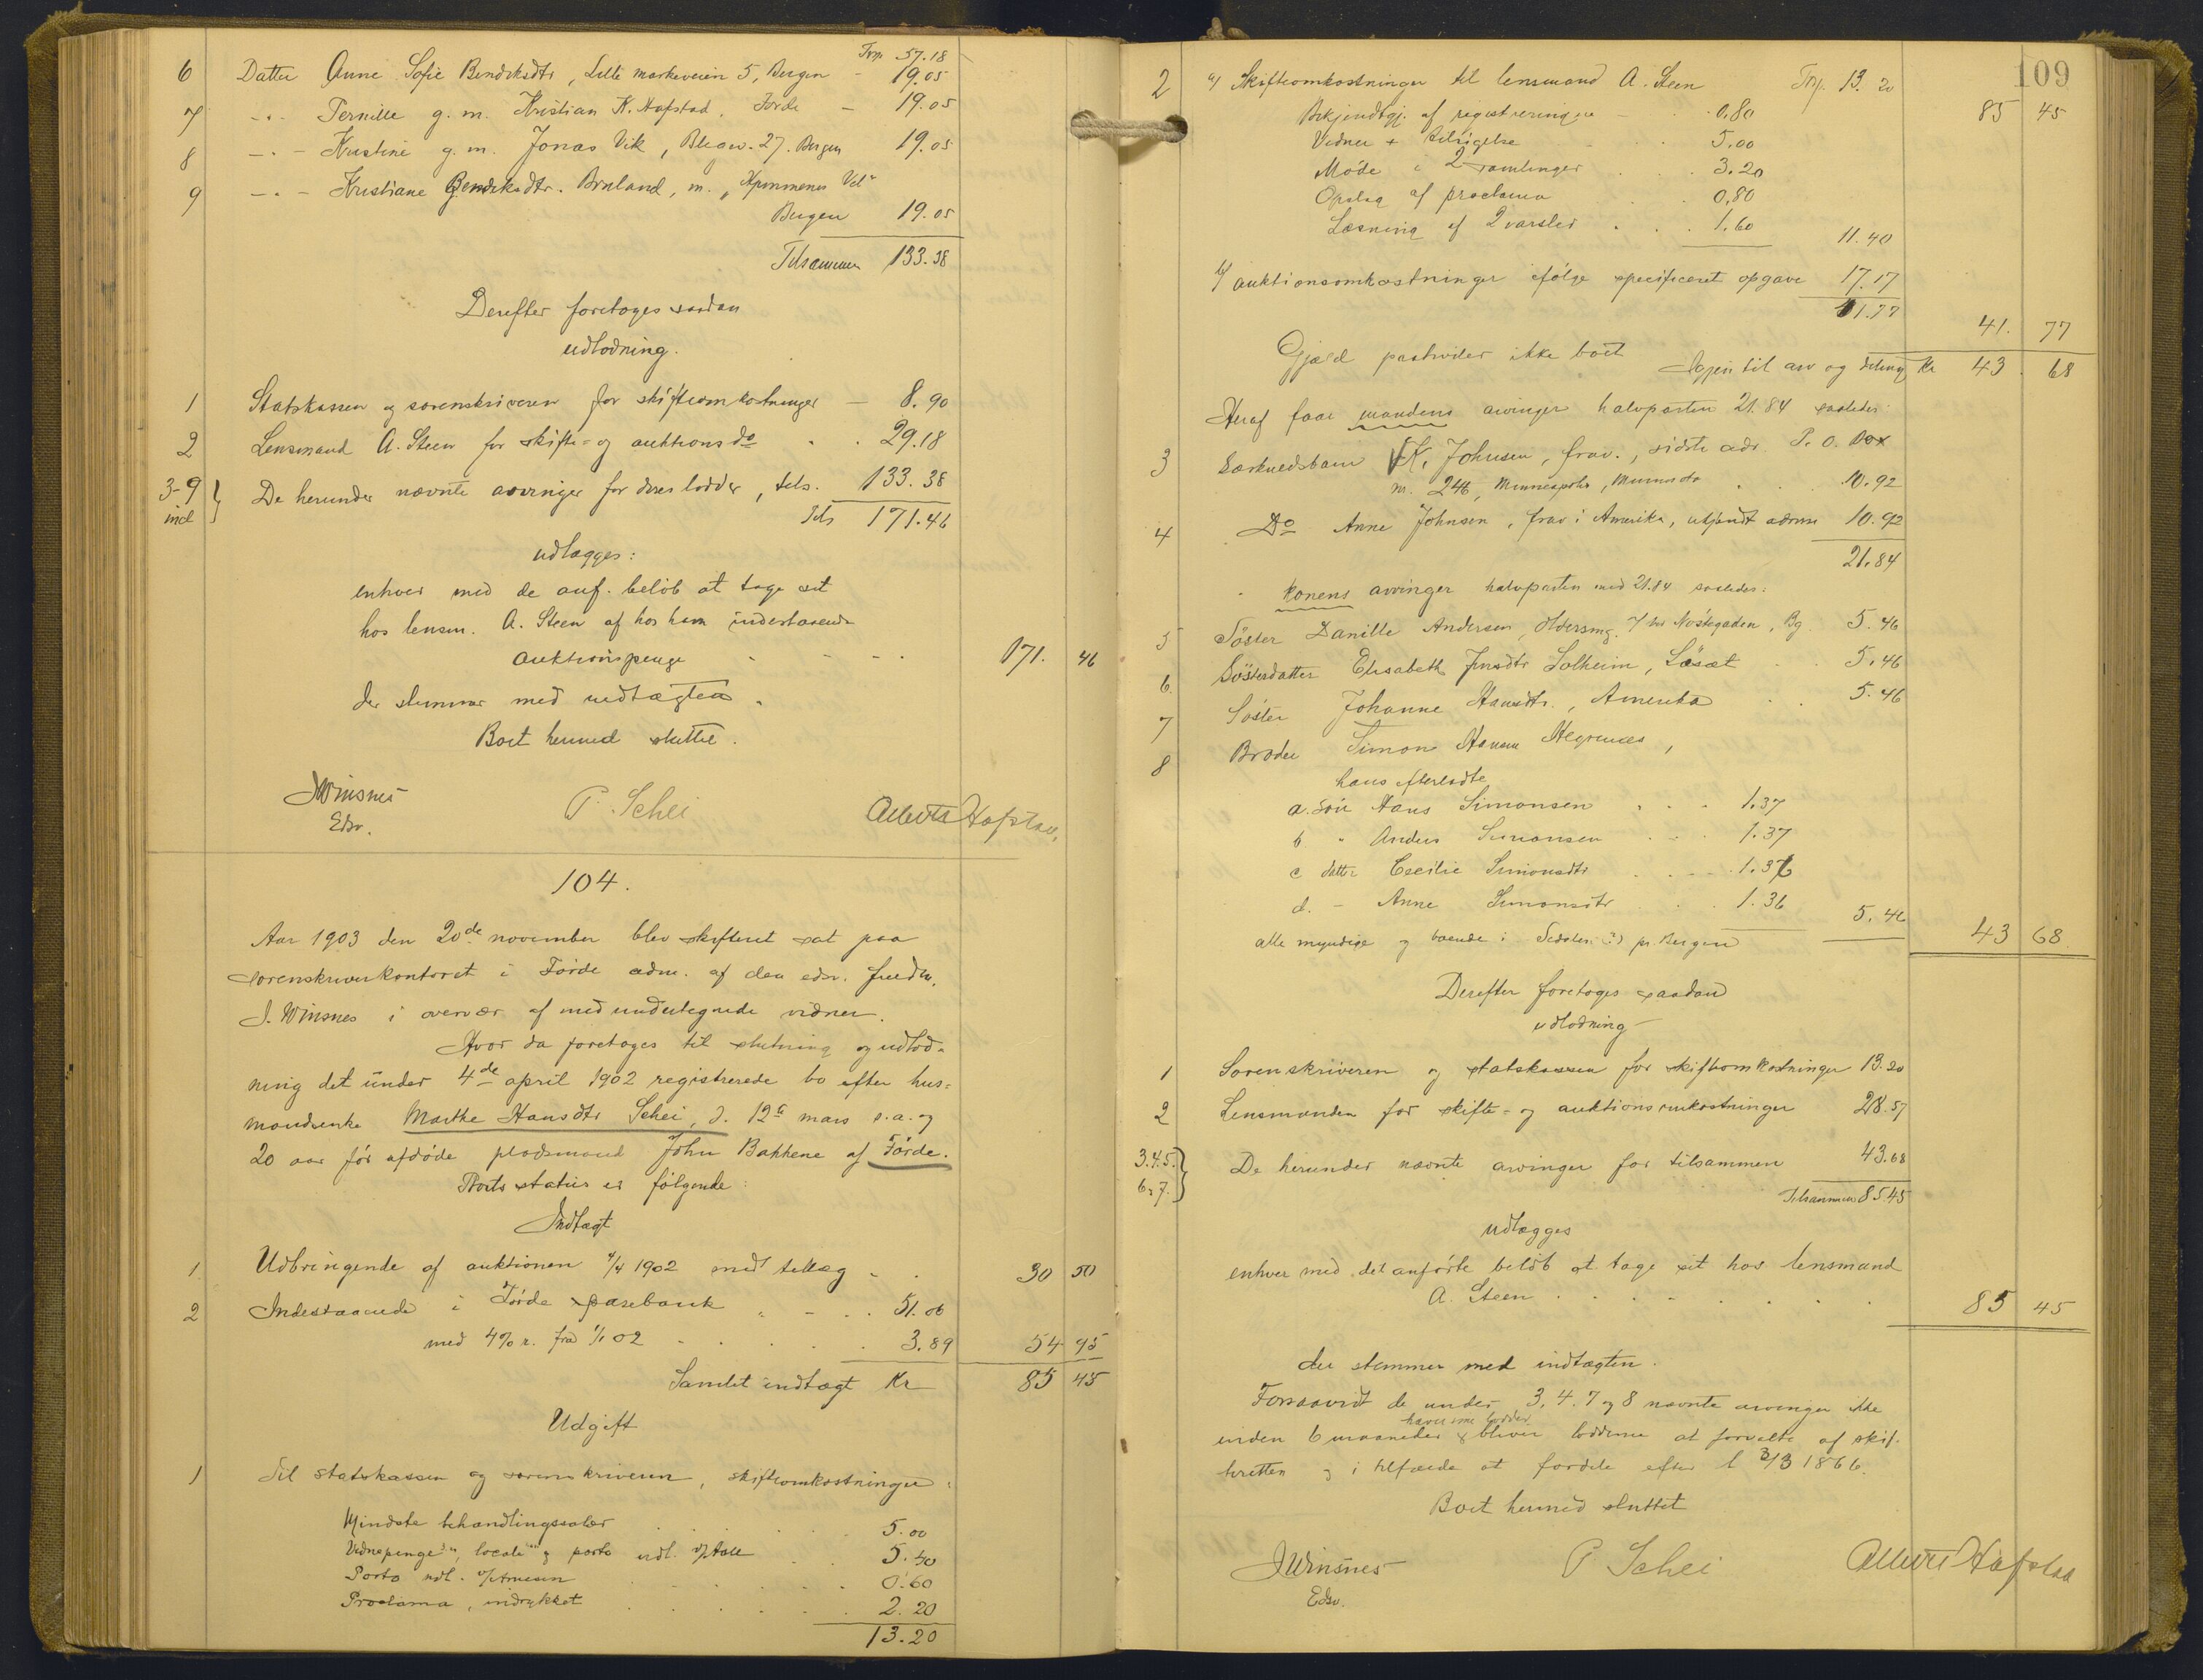 Trp. 57.18
6 Datter Anne Sofie Bendiksdtr, Lille markeveien 5, Bergen - 19.05
7 -"- Pernille g. m. Kristian K. Hafstad, Förde - 19.05
8 -"- Kristine g. m. Jonas Vik, 27. Bergen 19.05
9 -"- Kristiane Bendiksdtr. Bruland, m. "Hjemmenes Vel"
Bergen 19.05
Tilsammen 133.38
Derefter foretoges saadan
udlodning.
1 Statskassen og sorenskriveren for skifteomkostninger - 8.90
2 Lensmand A. Steen for skifte- og auktions do . . 29.18
3-9 incl } De herunder nævnte arvinger for deres lodder, tils. 133.38
Tils 171.46
udlægges:
enhver med de anf. belöb at tage sit
hos lensm. A. Steen af hos ham indestaaende
auktionspenge - - - - 171. 46
der stemmer med indtægten.
Boet hermed sluttet.
JWinsnes P. Schei Albert Hafstad
Edsv.
104.
Aar 1903 den 20de november blev skifteret sat paa
sorenskriverkontoret i Förde adm. af den edsv. fuldm.
J. Winsnes i overvær af medundertegnede vidner.
Hvor da foretoges til slutning og udlod-
ning det under 4de april 1902 registrerede bo efter hus-
mandsenke Marthe Hansdtr Schei, d. 12te mars s.a. og
20 aar för afdöde pladsmand John Bakkene af Förde.
Boets status er fölgende:
Indtægt
1. Udbringende af auktionen 4/4 1902 med tillæg - . 30 50
2 Indestaaende i Förde sparebank . - . 51.06
med 4% r. fra 1/1 02 - . . . . 3.89 54 95
Samlet indtægt Kr 85 45
Udgift
1 Til statskassen og sorenskriveren, skifteomkostninger:
Mindste behandlingssalær . . . . . 5.00
Vidnepenge, locale og porto udl. . . 5.40
Porto udl. . . . . . 0.60
Proclama, indrykket . . . . . . 2.20
13.20
109
2 a) Skifteomkostninger til lensmand A. Steen Trp. 13.20 85 45
Bekjendtgj. af registreringen - . . 0,80
Vidner + tilsigelse . . . 5.00
Möde i 2 samlinger . . . 3.20
Opslag af proclama . . 0,80
Læsning af 2 varsler . . . 1.60 11.40
b) auktionsomkostninger ifölge specificeret opgave 17.17
41.77 41. 77
Gjæld paahviler ikke boet
Igjen til arv og deling Kr 43 68
Heraf faar mandens arvinger halvparten 21.84 saaledes:
3 Særkuldsbarn K. Johnsen, frav., sidste adr. P. O. Box
nr. 246, Minneapolis, Minnesota . . . 10.92
4 Do Anne Johnsen, frav i Amerika, ukjendt adresse 10.92
21.84
konens arvinger halvparten med 21.84 saaledes:
5 Söster Danille Andersen, 7 Nöstegaden, Bg. 5.46
6. Södsterdatter Elisabeth Jensdtr Solheim, . . 5.46
7 Söster Johanne Hansdtr., Amerika . . 5.46
8 Broder Simon Hansen Hegrenæs,
hans efterladte
a. Sön Hans Simonsen . . . 1.37
b " Anders Simonsen . . . 1.37
c datter Cecilie Simonsdtr . . . 1.36
d. - Anne Simonsdtr . . . 1.36 5.46
alle myndige og boende i (?) pr. Bergen 43 68
Derefter foretoges saadan
udlodning
1 Sorenskriveren og statskassen for skifteomkostninger 13.20
2 Lensmanden for skifte- og auktionsomkostninger 28.57
3.4.5. 6,7. } De herunder nævnte arvinger for tilsammen 43.68
Tilsammen 85.45
udlægges
enhver med det anförte belöb at tage sit hos lensmand
A. Steen . . . . . . . . 85 45
der stemmer med indtægten.
Forsaavidt de under 3, 4. 7 og 8 nævnte arvinger ikke
hæver sine lodder
inden 6 maaneder bliver lodderne at forvalte af skif-
teretten og i tilfælde at fordele efter l 3/3 1866.
Boet hermed sluttet
JWinsnes P Schei Albert Hafstad
Edsv.